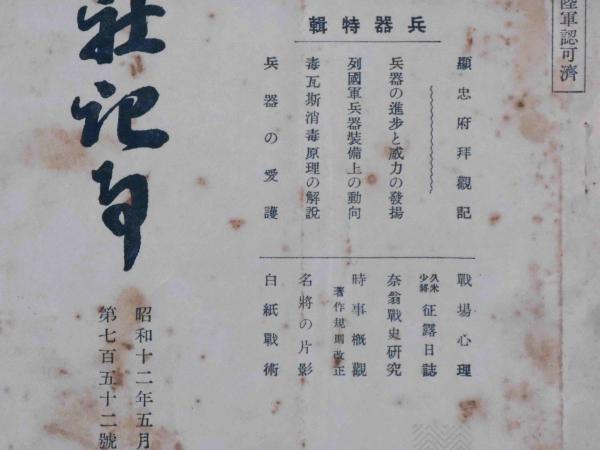 陸軍認可濟
兵器特輯
顯忠府拜觀記
兵器の進步と威力の發揚
列國軍兵器裝備上の動向
毒瓦斯消毒原理の解說
兵器の愛護
戰場心理
久米少將 征露日誌
奈翁戰史硏究
時事槪觀
著作規則改正
名將の片影
白紙戰術
記事
昭和十二年五月
第七百五十二號